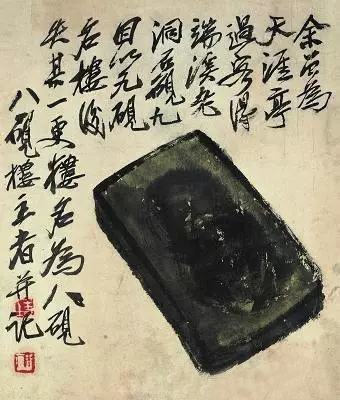 余嘗為
天涯亭
過客得
端溪老
洞石硯九
因以九硯
名樓後
失其一更樓名為八硯
八硯樓主者并記